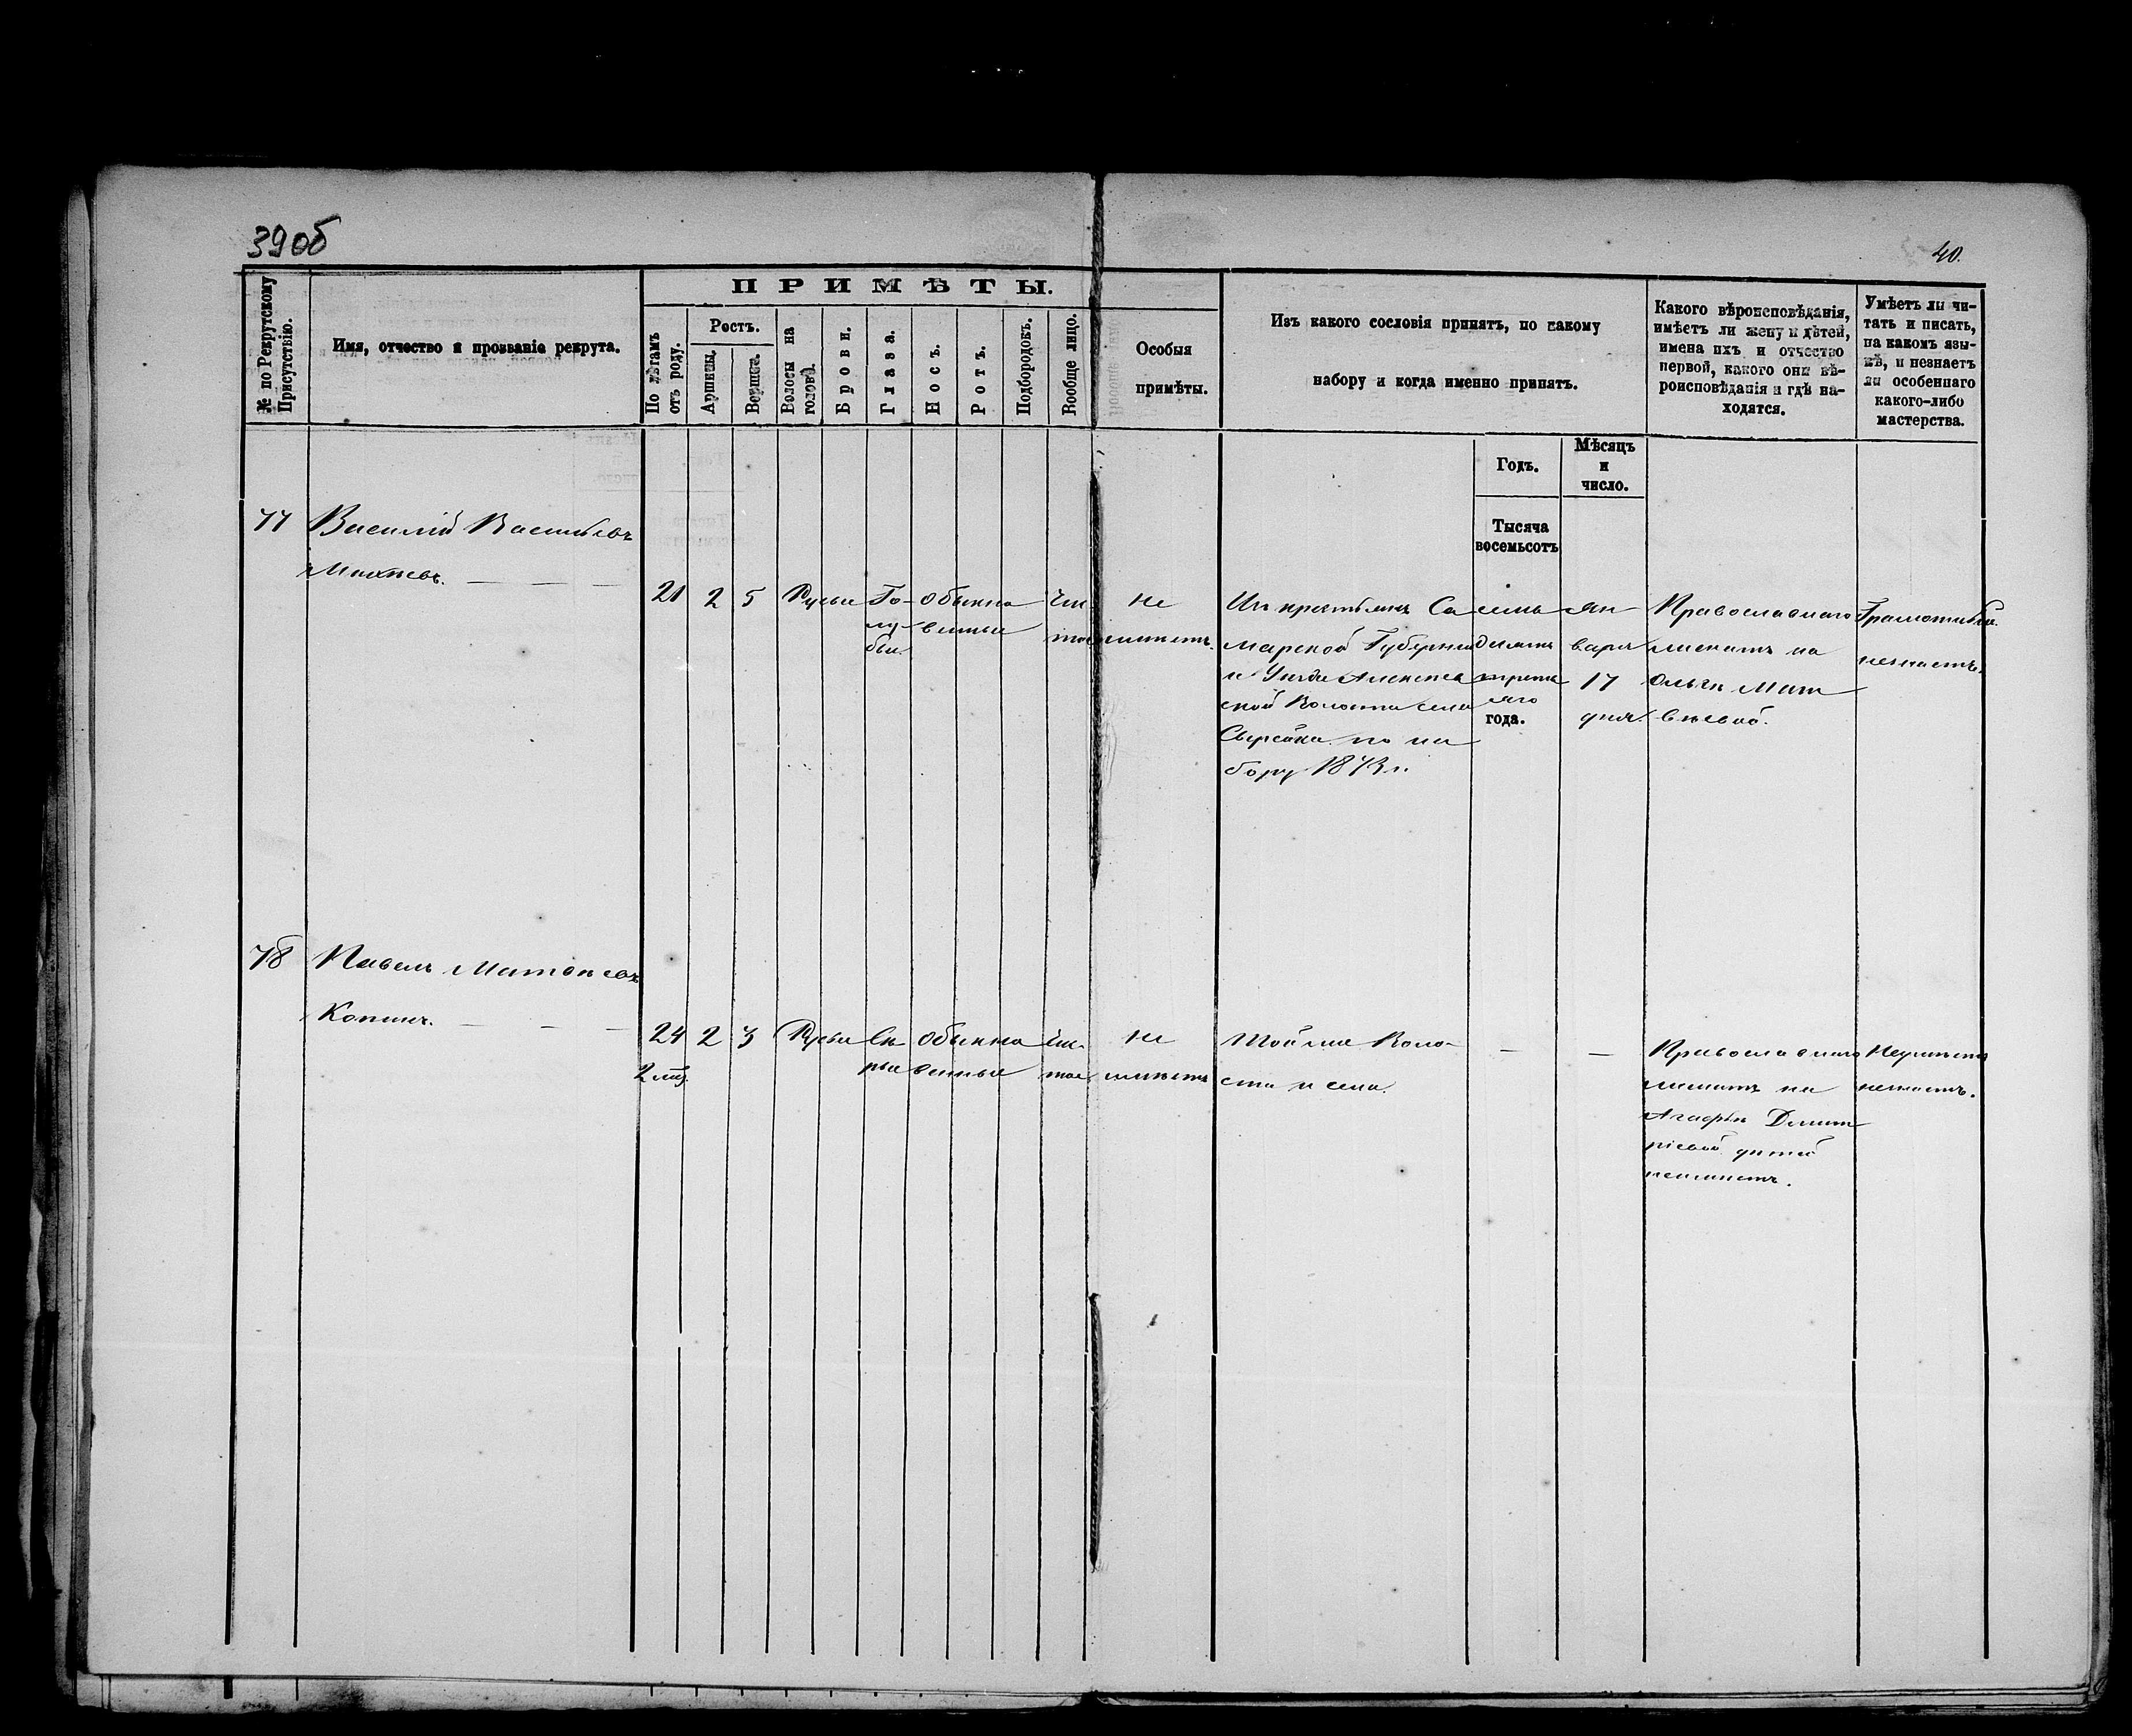 39об
40.
№ по Рекрутскому Присутствію.
Имя, отчество и прозваніе рекрута.
ПРИМѢТЫ.
По лѣтамъ отъ роду.
Ростъ.
Аршины.
Вершки.
Волосы на головѣ.
Брови.
Глаза.
Носъ.
Ротъ.
Подбородокъ.
Вообще лицо.
Особыя
примѣты.
Изъ какого сословія принятъ, по какому
набору и когда именно принятъ.
Какого вѣроисповѣданія,
имѣетъ ли жену и дѣтей,
имена ихъ и отчество
первой, какого они вѣ-
роисповѣданія и гдѣ на-
ходятся.
Умѣетъ ли чи-
тать и писать,
на какомъ язы-
кѣ, и незнаетъ
ли особеннаго
какого-либо
мастерства.
Годъ.
Мѣсяцъ
и
число.
Тысяча
восемьсотъ
77
Василій Васильевъ
Михѣевъ.
21
2
5
Русые
Го-
лу-
бые
Обыкно
венные
Чис
тое
не
имѣетъ.
Изъ крестьянъ Са
марской Губерніи
и Уѣзда Алексѣев
ской Волости села
по на
бору 1873 г.
семь
десять
третьяго
года.
Ян
варя
17
дня
Православнаго
женатъ на
Ольгѣ Мат
вѣевой.
Грамотный.
незнаетъ.
78
Павелъ Матвѣевъ
Копинъ.
24
2 мѣс.
2
3
Русые
Сѣ
рые
Обыкно
венные
Чис
тое
не
имѣетъ
Той же Воло-
сти и села.
—
—
Православнаго
женатъ на
Агафьѣ Димит
ріевой дѣтей
неимѣетъ.
Неумѣетъ
незнаетъ.